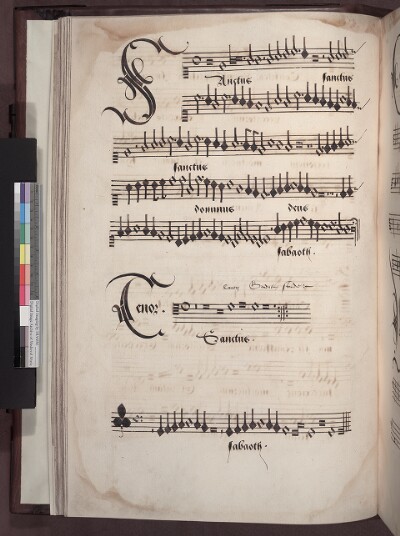 Sanctus sanctus
sanctus
dominus deus
sabaoth.
Tenor.
Sanctus.
sabaoth.